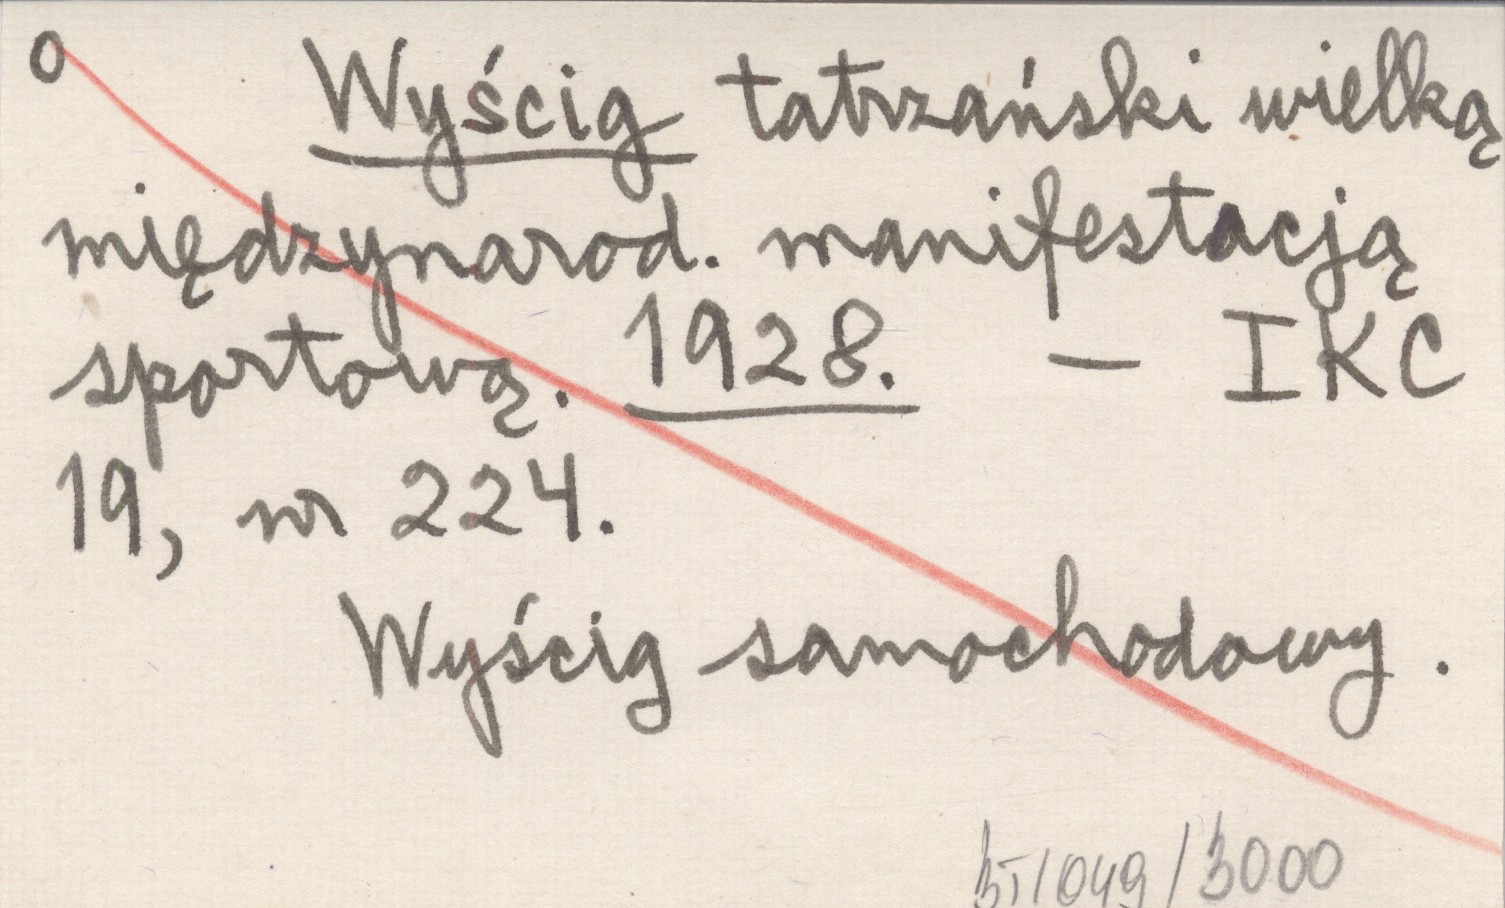 o Wyścig tatrzański wielką
międzynarod. manifestacją
sportową. 1928. – IKC
19, nr 224.
Wyścig samochodowy.
/049/3000